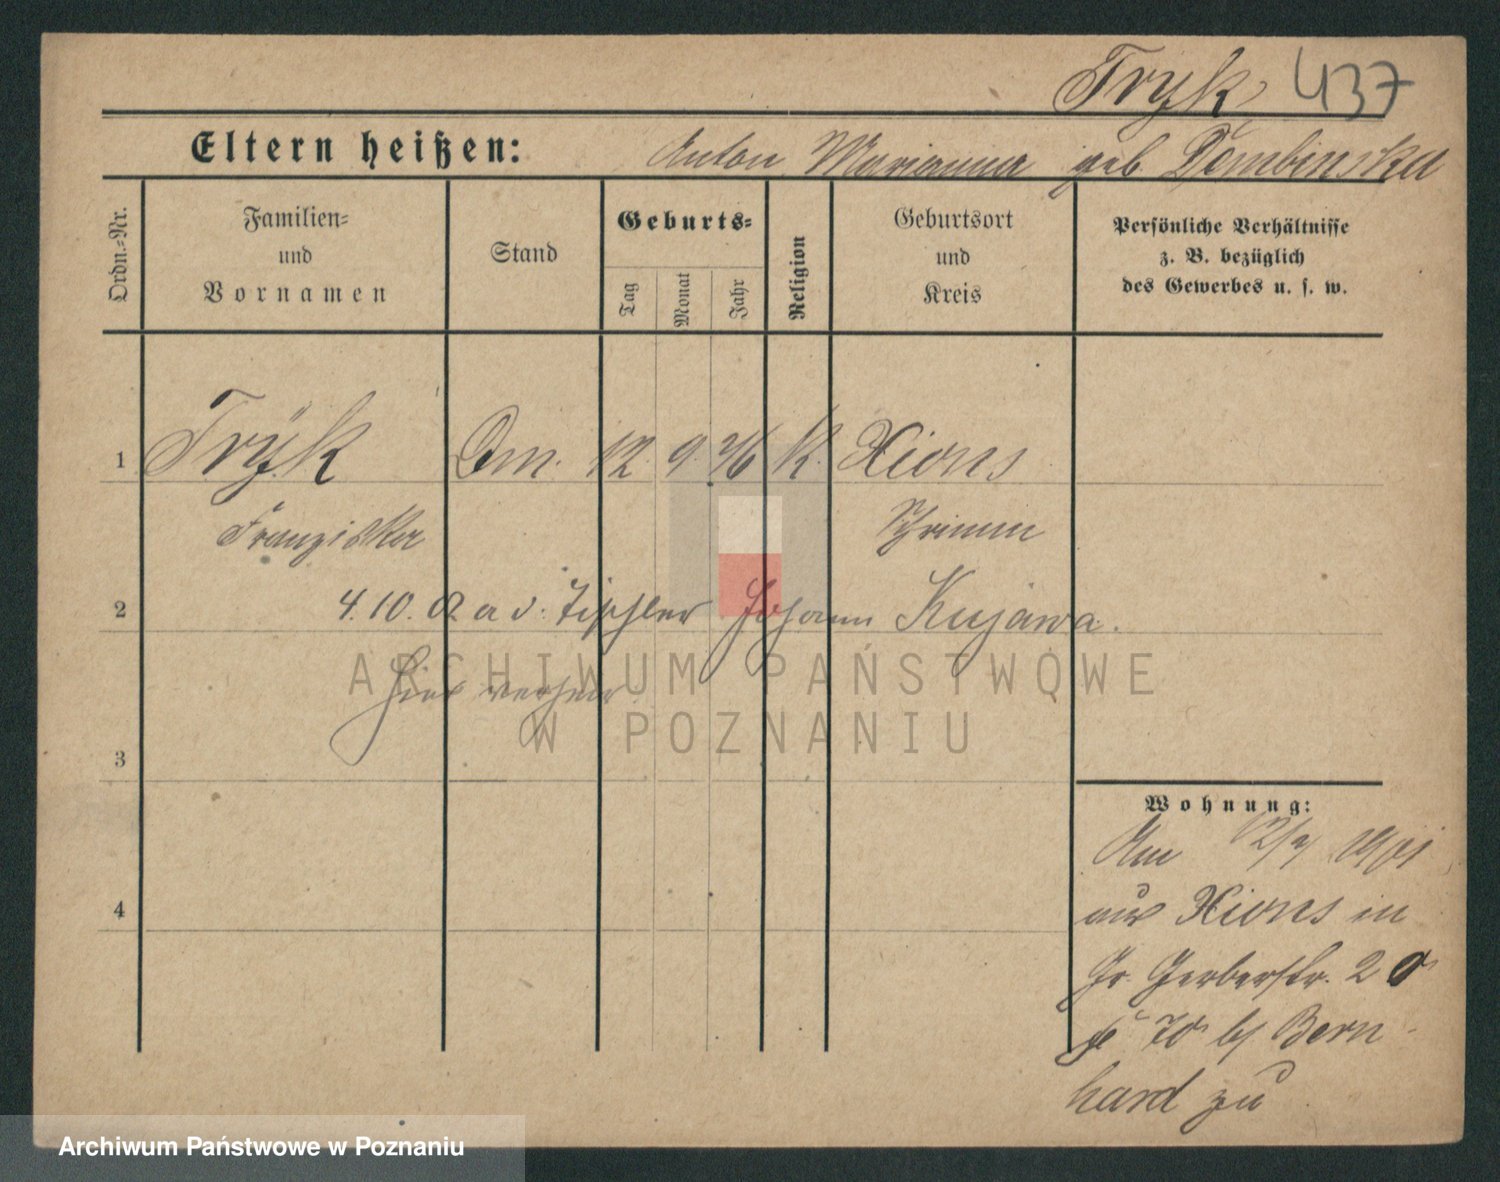 Tryk 437
Eltern heißen: Anton Marianna geb. Dembinska
Ordn.=Nr.
Familien=
und
Vornamen
Stand
Geburts=
Tag Monat Jahr
Religion
Geburtsort
und
Kreis
Persönliche Verhältnisse
z. B. bezüglich
des Gewerbes u. s. w.
1 Trÿk 12. 9. 76 K. Xions
Franziska Schrimm
2 4. 10. a d. Tischler Johann Kujawa.
hier verheir.
3
4
Wohnung:
Am 12/7 1901
aus Xions in
Gr. Gerberstr. 20
b/ Bern-
hard zu
ARCHIWUM PAŃSTWOWE
W POZNANIU
Archiwum Państwowe w Poznaniu